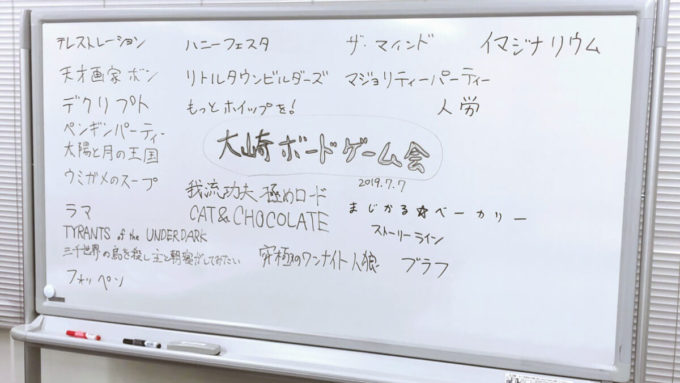 テレストレーション ハニーフェスタ ザ・マインド イマジナリウム
天才画家ボン リトルタウンビルダーズ マジョリティーパーティー
デクリプト もっとホイップを! 人労
ペンギンパーティー
太陽と月の王国
大崎ボードゲーム会
2019.7.7
ウミガメのスープ
我流功夫極めロード
ラマ CAT&CHOCOLATE まじかる☆ベーカリー
TYRANTS of the UNDERDARK ストーリーライン
三千世界の烏を殺し主と朝寝がしてみたい 究極のワンナイト人狼 ブラフ
フォッペン